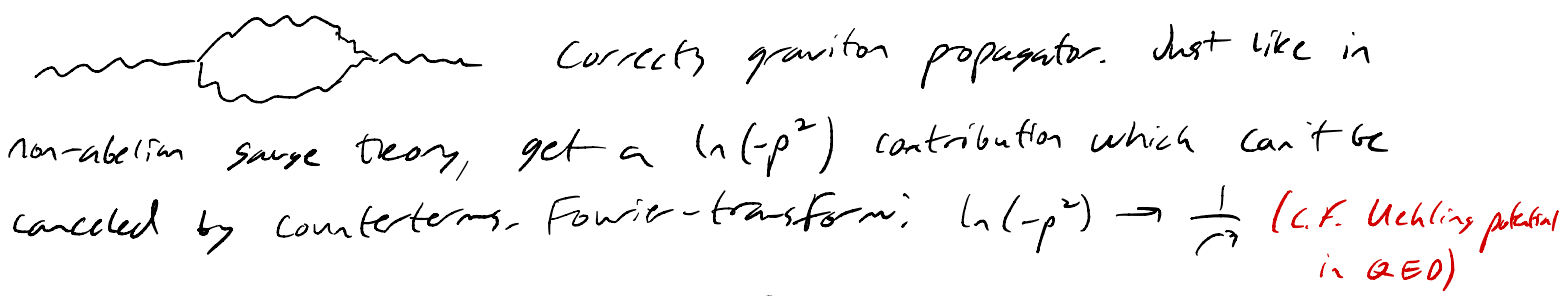 Corrects graviton propagator. Just like in
non-abelian gauge theory, get a ln(-p²) contribution which can't be
canceled by counterterms. Fourier-transform: ln(-p²) → 1/r³ (c.f. Uehling potential
in QED)